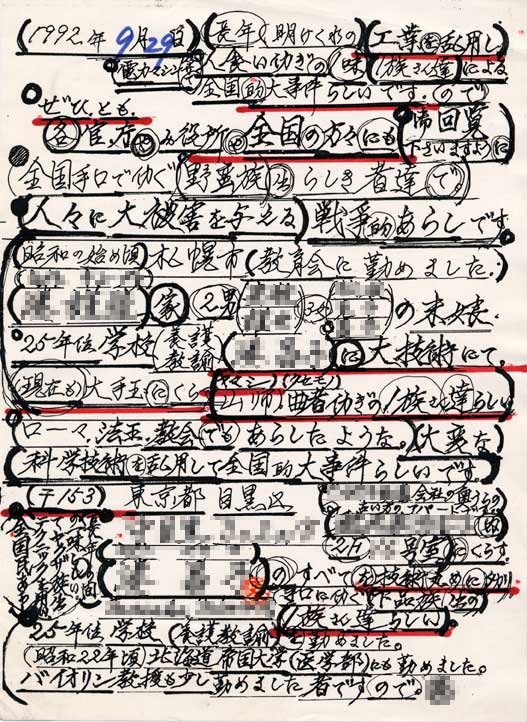 (1992.年 9月29日)(長年く明けくれの(工業を乱用し)
電力マシン 人食い仂ぎの(一味)(族さん達)による
全国的大事件らしいです。(ので)
ぜひ、とも。
各官、庁や お役所や 全国の方々にも(御回覧
下さいますように)
全国手口で仂ぐ(野蛮族)らしき者達で。
人々に大被害を与える)戦争的あらしです。
(昭和の始め頃)札幌市(教育会に勤めました。)
家 2男 3女 の末娘、
25年位学校(養護教諭)に大技術にて。
(現在も)大手玉にくら
曲者仂ぎの一族さん達らしい。
ローマ、法王、教会(でも)あらしたような。(大変な)
(科学技術を乱用して全国的大事件らしいです。
(〒153)東京都 目黒区
号室にくらす
のすべて
手口に仂く(下品族)
一族さん達らしい。
25年位、学校(養護教諭)を勤めました。
(昭和22年頃)北海道帝国大学(医学部)にも勤めました。
バイオリン教授も少し勤めました者ですので。